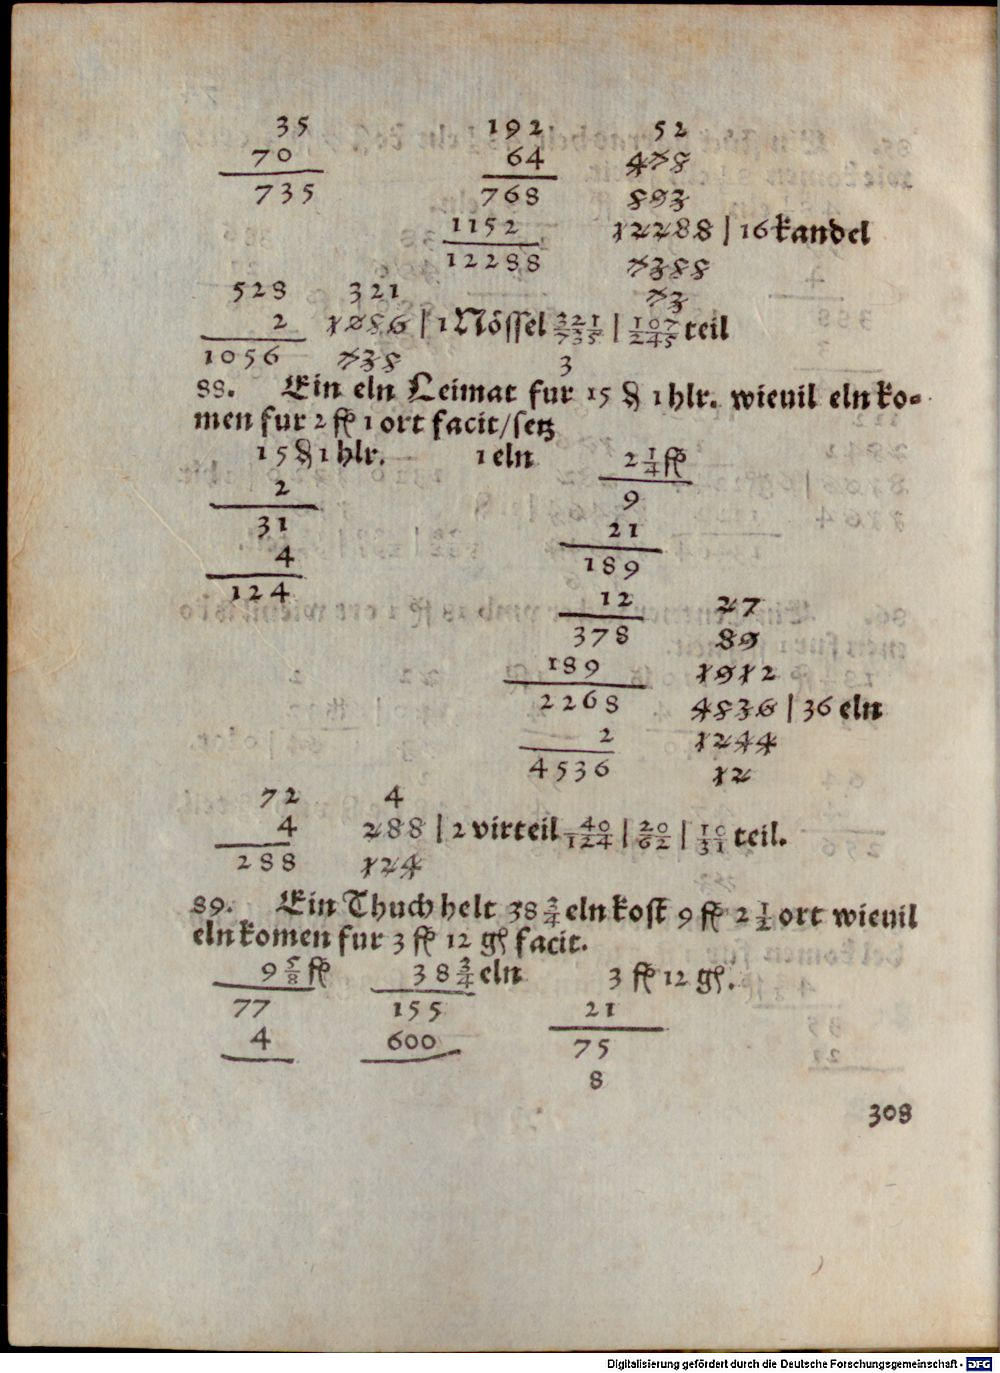 35 192 52
70 64 478
735 768 893
1152 12288 | 16 kandel
12288 7388
528 321 73
2 1086 | 1 Nössel 321/735 | 107/245 teil
1056 738 3
88. Ein eln Leimat fur 15 ₰ 1 hlr. wieuil eln ko=
men fur 2 fl 1 ort facit/setz
15 ₰ 1 hlr. 1 eln 2 1/4 fl
2 9
31 21
4 189
124 12 27
378 89
189 1912
2268 4836 | 36 eln
2 1244
4536 12
72 4
4 288 | 2 virteil 40/124 | 20/62 | 10/31 teil.
288 124
89. Ein Thuch helt 38 3/4 eln kost 9 fl 2 1/2 ort wieuil
eln komen fur 3 fl 12 gl facit.
9 5/8 fl 38 3/4 eln 3 fl 12 gl.
77 155 21
4 600 75
8
308
Digitalisierung gefördert durch die Deutsche Forschungsgemeinschaft - DFG